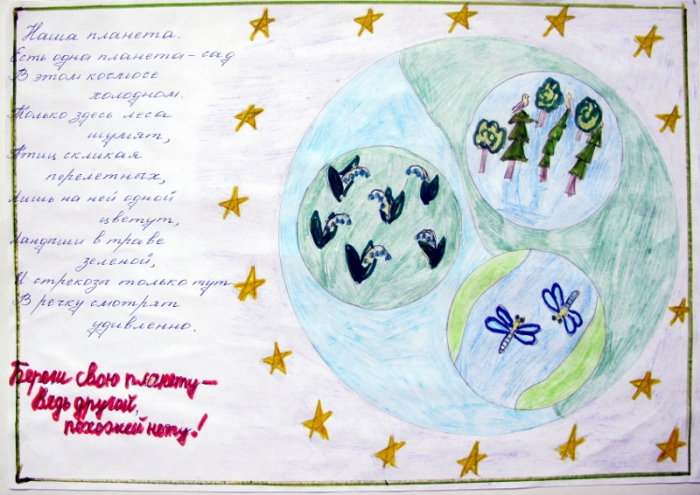 Наша планета.
Есть одна планета - сад
В этом космосе
холодном.
Только здесь леса
шумят,
Птиц скликая
перелетных,
Лишь на ней одной
цветут,
Ландыши в траве
зеленой,
И стрекозы только тут
В речку смотрят
удивленно.
Береги свою планету —
Ведь другой,
похожей нету!